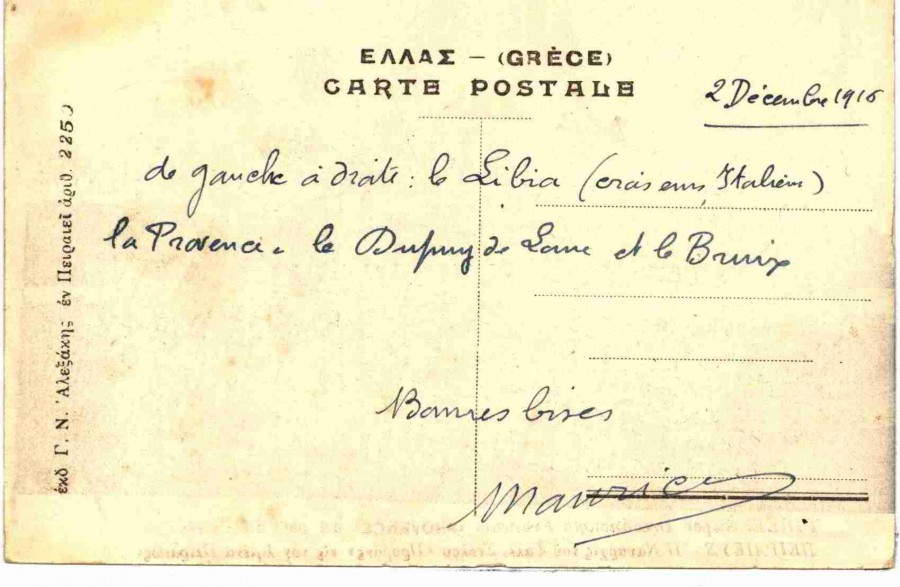 ΕΛΛΑΣ – (GRÈCE)
CARTE POSTALE
2 Décembre 1916
de gauche à droite : le Libia (croiseur Italien)
la Provence, le Dupuy de Lome et le Bruix
Bonnes bises
Maurice
έκδ Γ. Ν. Ἀλεξάκης ἐν Πειραιεῖ ἀριθ. 225